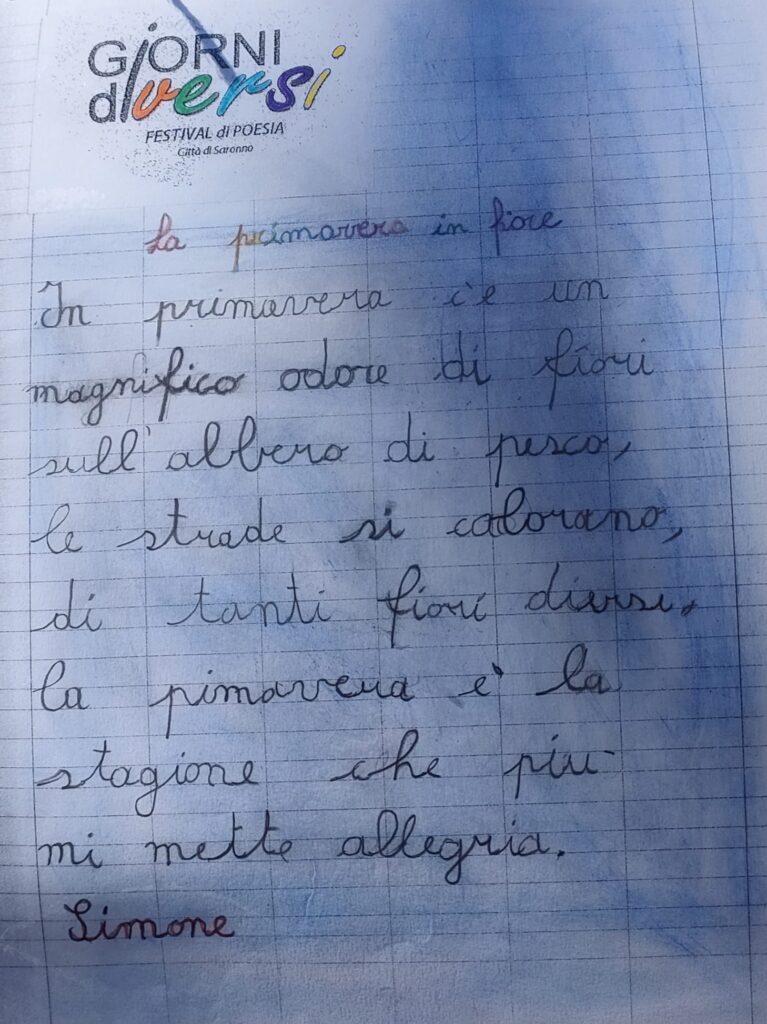 GiORNI
diversi
FESTIVAL di POESIA
Città di Saronno
La primavera in fiore
In primavera c'e un
magnifico odore di fiori
sull'albero di pesco,
le strade si colorano,
di tanti fiori diversi.
la pimavera è la
stagione che più
mi mette allegria.
Simone